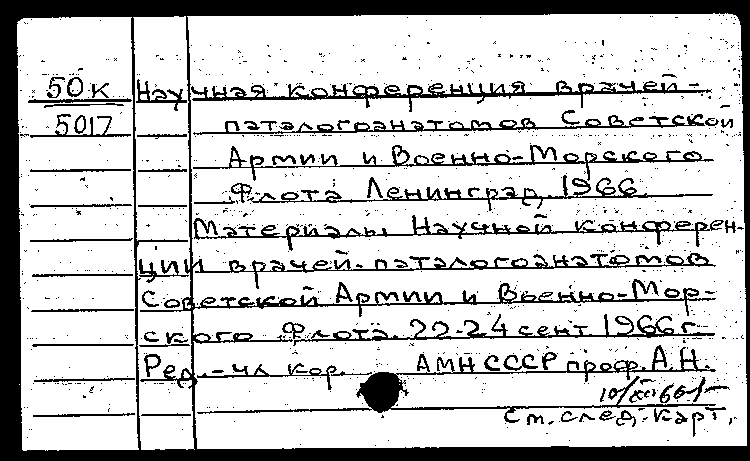 50к Научная конференция врачей-
5017 паталогоанатомов Советской
Армии и Военно-Морского
Флота Ленинград, 1966
Материалы Научной конферен-
ции врачей-паталогоанатомов
Советской Армии и Военно-Мор-
ского Флота. 22-24 сент 1966 г
Ред.-чл кор. АМН СССР проф. А.Н.
См. след. карт.